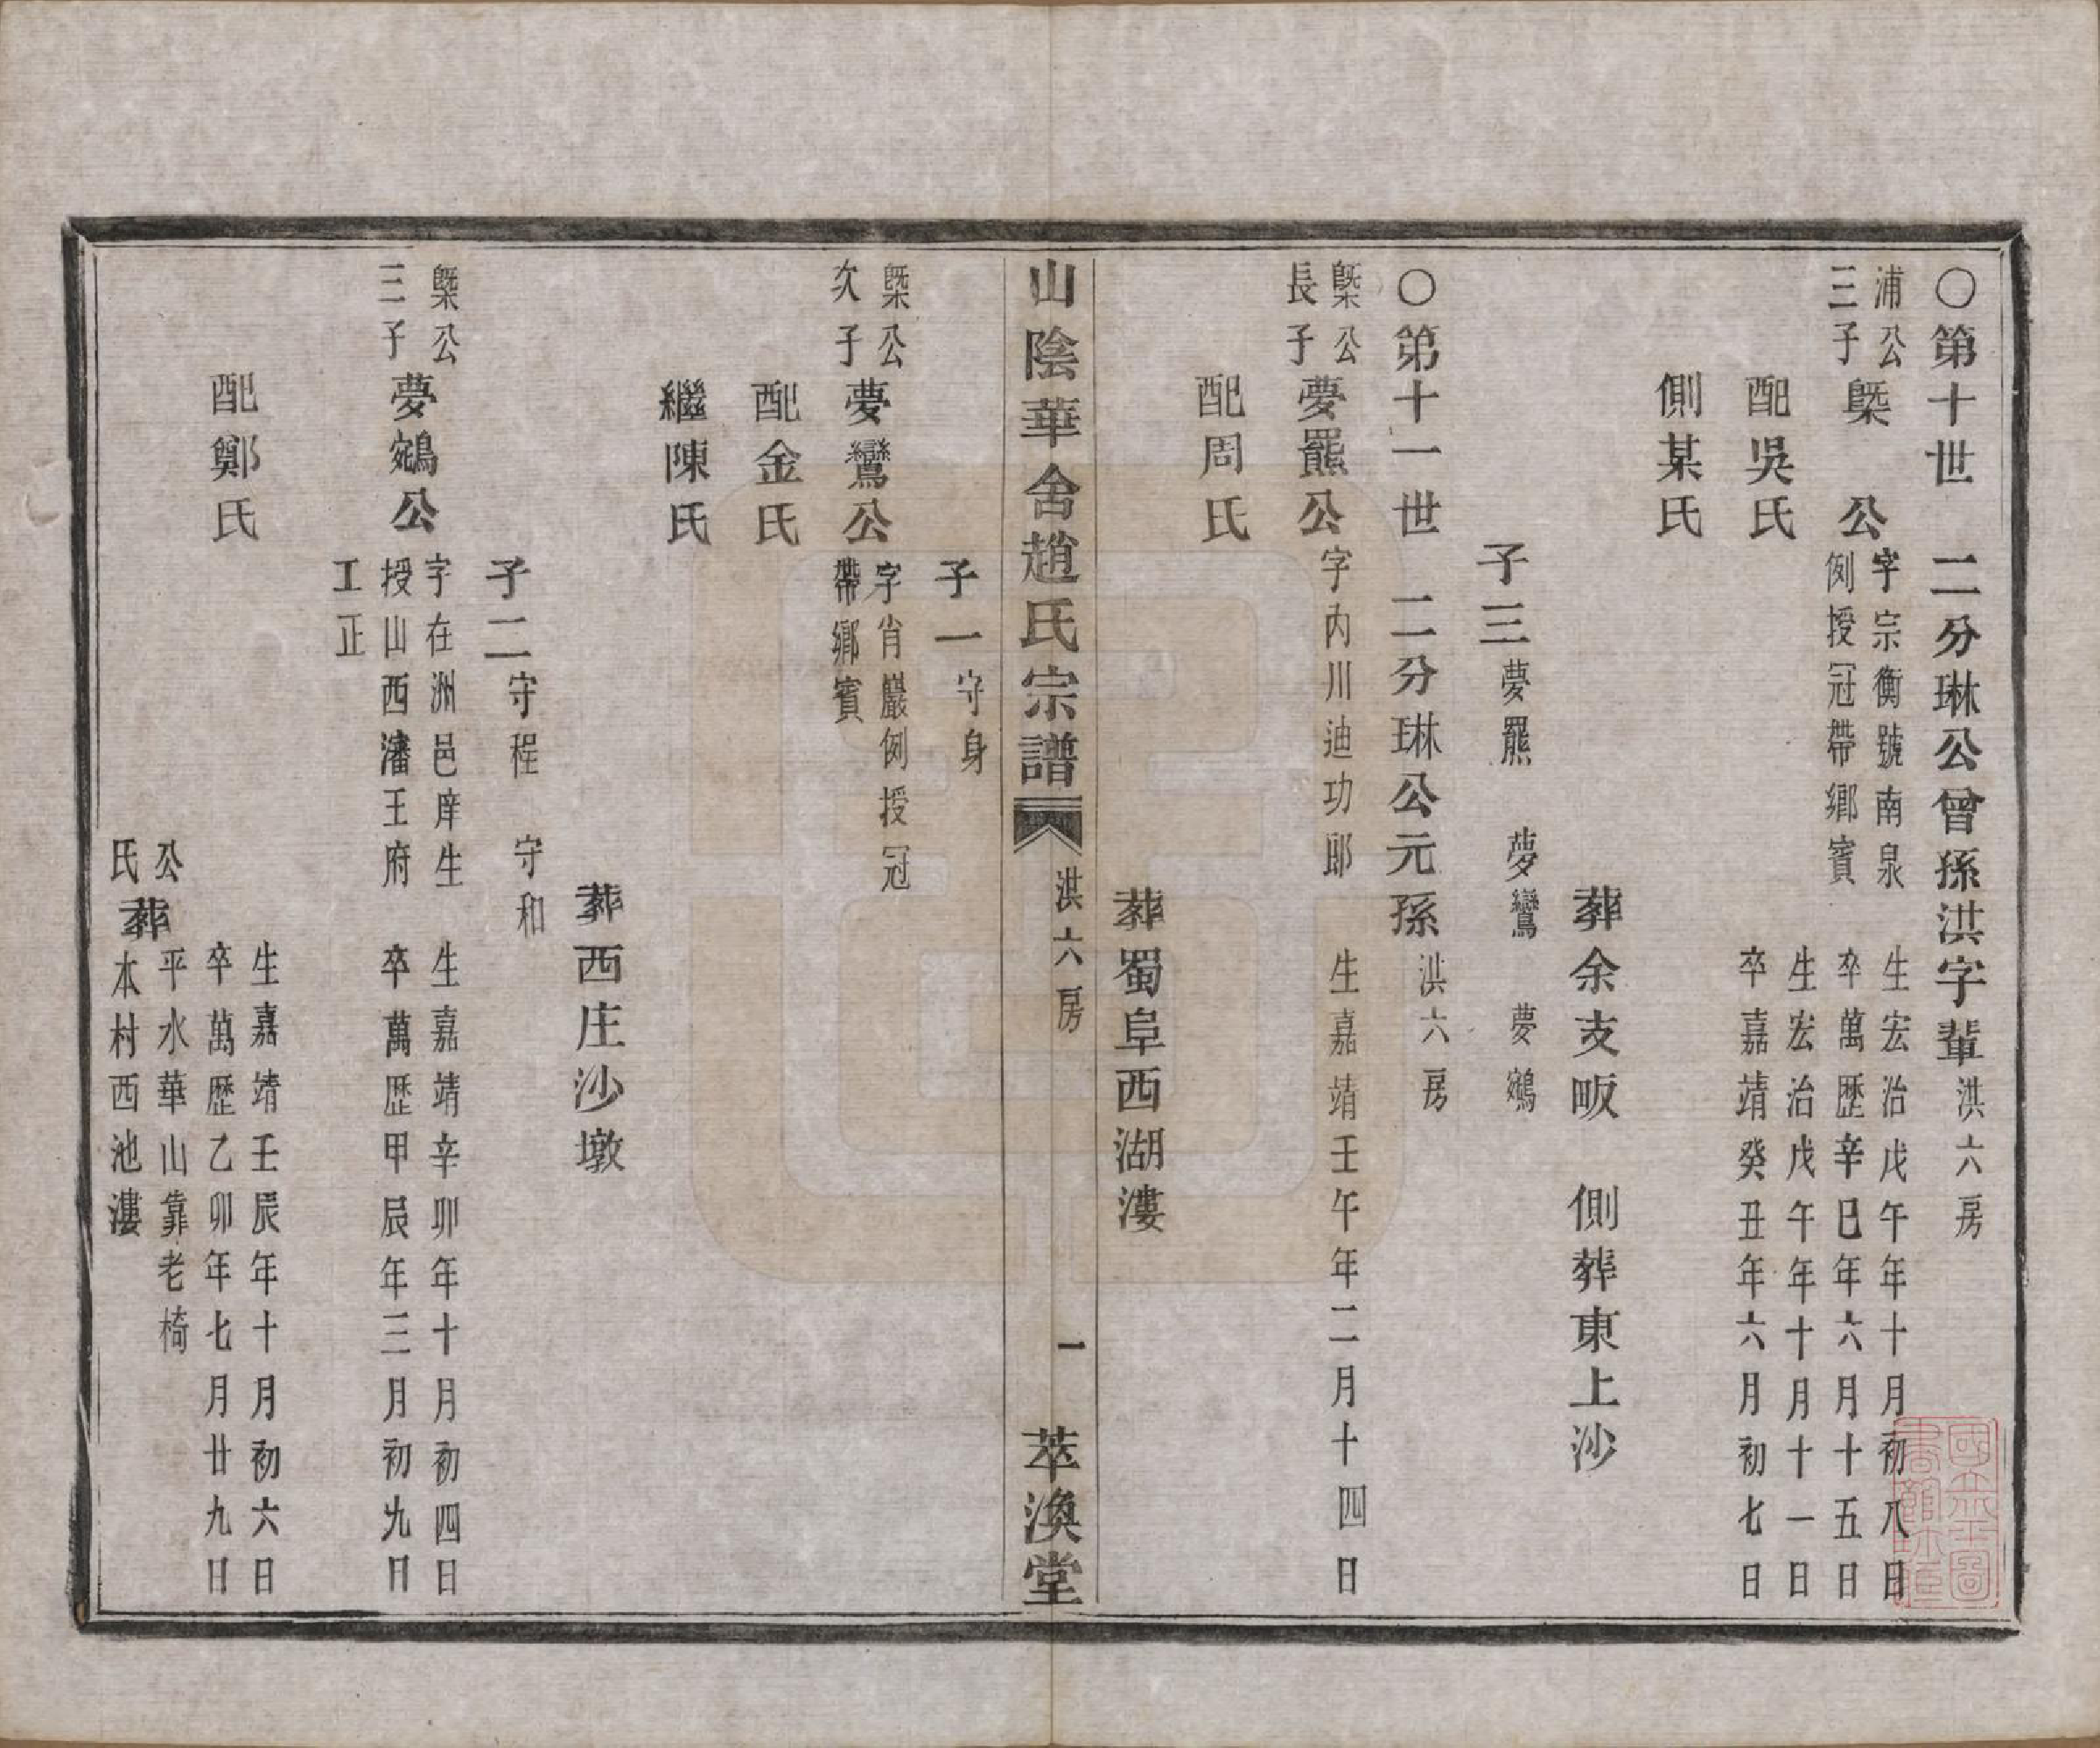 ○第十世　二分琳公曾孫洪字輩 洪六房
浦公
三子
槩　公
字宗衡號南泉
例授冠帶鄉賓
生宏治戊午年十月初八日
卒萬歷辛巳年六月十五日
配吳氏
生宏治戊午年十月十一日
卒嘉靖癸丑年六月初七日
側某氏
葬余支畈　側葬東上沙
子三 夢羆　夢鸞　夢鵷
○第十一世　二分琳公元孫 洪六房
槩公
長子
夢羆公
字內川迪功郎
生嘉靖壬午年二月十四日
配周氏
葬蜀阜西湖漊
山陰華舍趙氏宗譜　洪六房　一　萃渙堂
子一 守身
槩公
次子
夢鸞公
字肖巖例授冠
帶鄉賓
配金氏
繼陳氏
葬西庄沙墩
子二 守程　守和
槩公
三子
夢鵷公
字在洲邑庠生
授山西瀋王府
工正
生嘉靖辛卯年十月初四日
卒萬歷甲辰年三月初九日
配鄭氏
生嘉靖壬辰年十月初六日
卒萬歷乙卯年七月廿九日
公
氏
葬
平水華山靠老椅
本村西池漊